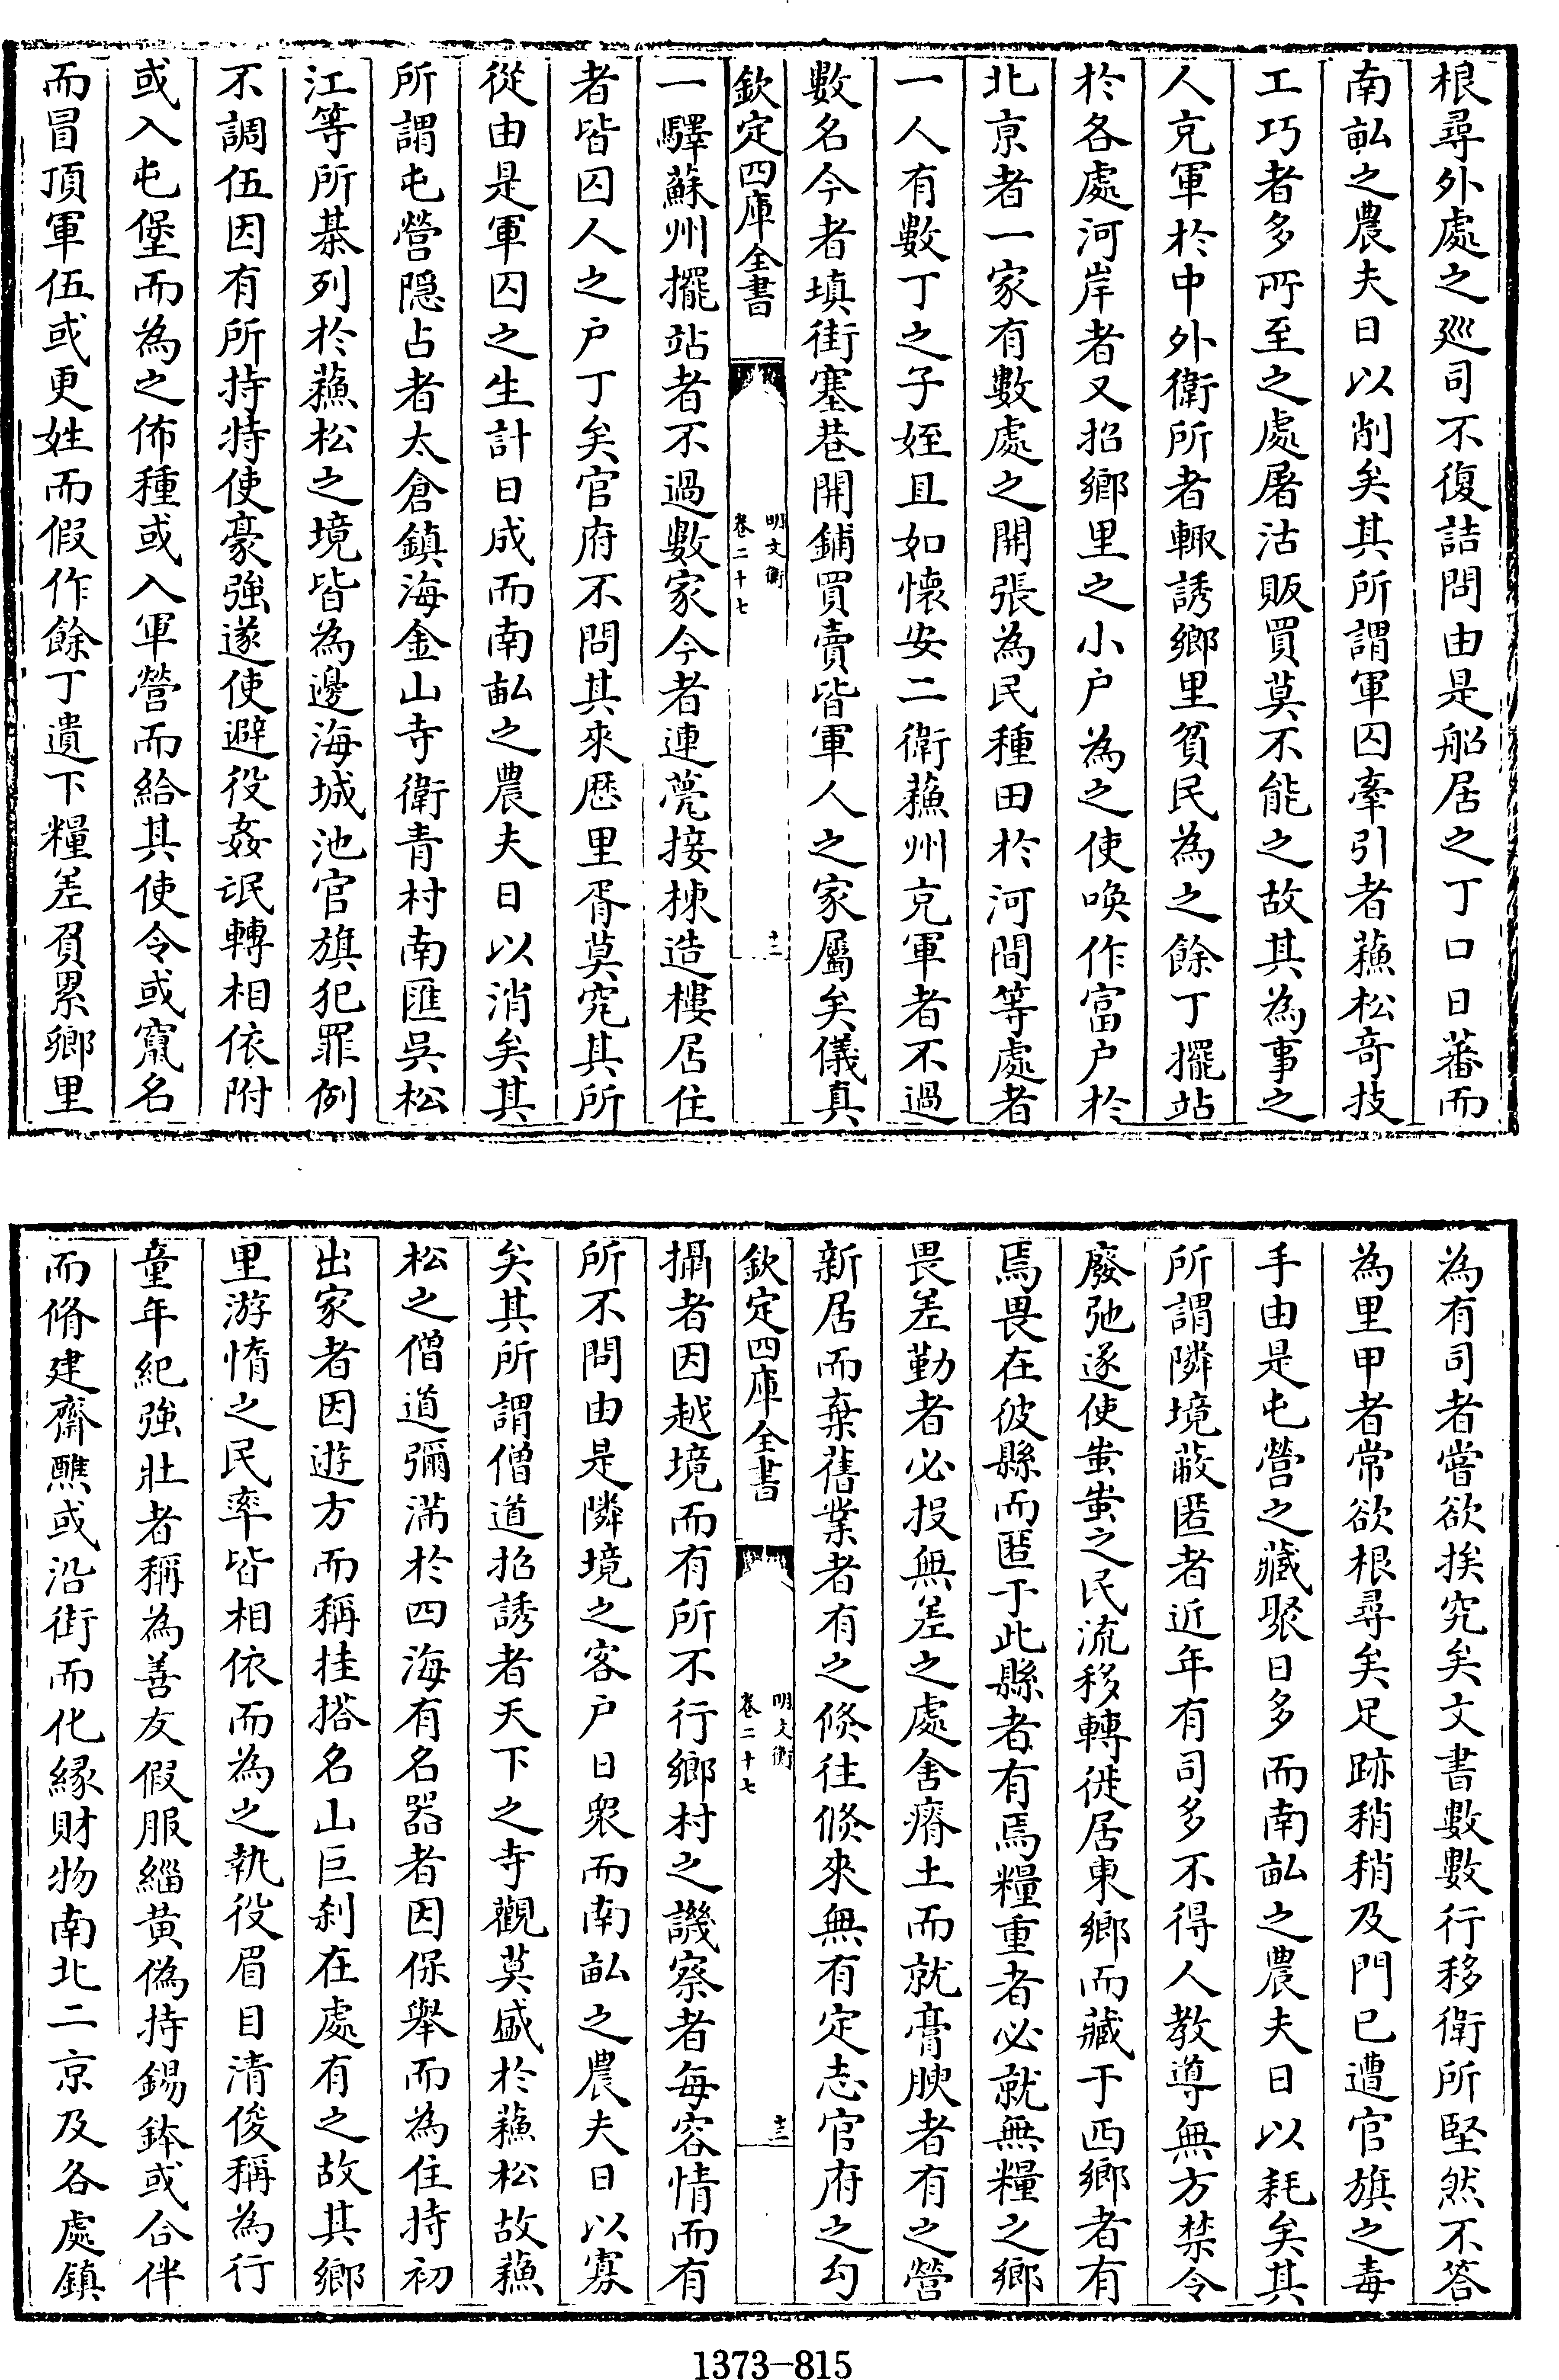 根尋外處之廵司不復詰問由是船居之丁口日蕃而
南畆之農夫日以削矣其所謂軍囚牽引者蘓松竒技
工巧者多所至之處屠沽販買莫不能之故其為事之
人充軍於中外衛所者輙誘鄉里貧民為之餘丁擺站
於各處河岸者又招鄉里之小户為之使喚作富户於
北京者一家有數處之開張為民種田於河間等處者
一人有數丁之子姪且如懐安二衛蘓州充軍者不過
數名今者填街塞巷開鋪買賣皆軍人之家屬矣儀真
欽定四庫全書
明文衡
卷二十七
十二
一驛蘇州擺站者不過數家今者連甍接棟造樓居住
者皆囚人之户丁矣官府不問其來歴里胥莫究其所
從由是軍囚之生計日成而南畆之農夫日以消矣其
所謂屯營隠占者太倉鎮海金山寺衛青村南匯吳松
江等所棊列於蘓松之境皆為邊海城池官旗犯罪例
不調伍因有所恃恃使豪強遂使避役姦氓轉相依附
或入屯堡而為之佈種或入軍營而給其使令或竄名
而冒頂軍伍或更姓而假作餘丁遺下糧差負累鄉里
為有司者嘗欲挨究矣文書數數行移衛所堅然不答
為里甲者常欲根尋矣足跡稍稍及門已遭官旗之毒
手由是屯營之藏聚日多而南畆之農夫日以耗矣其
所謂隣境蔽匿者近年有司多不得人教導無方禁令
廢弛遂使蚩蚩之民流移轉徙居東鄉而藏于西鄉者有
焉畏在彼縣而匿于此縣者有焉糧重者必就無糧之鄉
畏差勤者必投無差之處舍瘠土而就膏腴者有之營
新居而棄舊業者有之倐往倐來無有定志官府之勾
欽定四庫全書
明文衡
卷二十七
十三
攝者因越境而有所不行鄉村之譏察者每容情而有
所不問由是隣境之客户日衆而南畆之農夫日以寡
矣其所謂僧道招誘者天下之寺觀莫盛於蘓松故蘓
松之僧道彌滿於四海有名器者因保舉而為住持初
出家者因遊方而稱挂搭名山巨刹在處有之故其鄉
里游惰之民率皆相依而為之執役眉目清俊稱為行
童年紀強壯者稱為善友假服緇黄偽持錫鉢或合伴
而脩建齋醮或沿街而化緣財物南北二京及各處鎮
1373-815